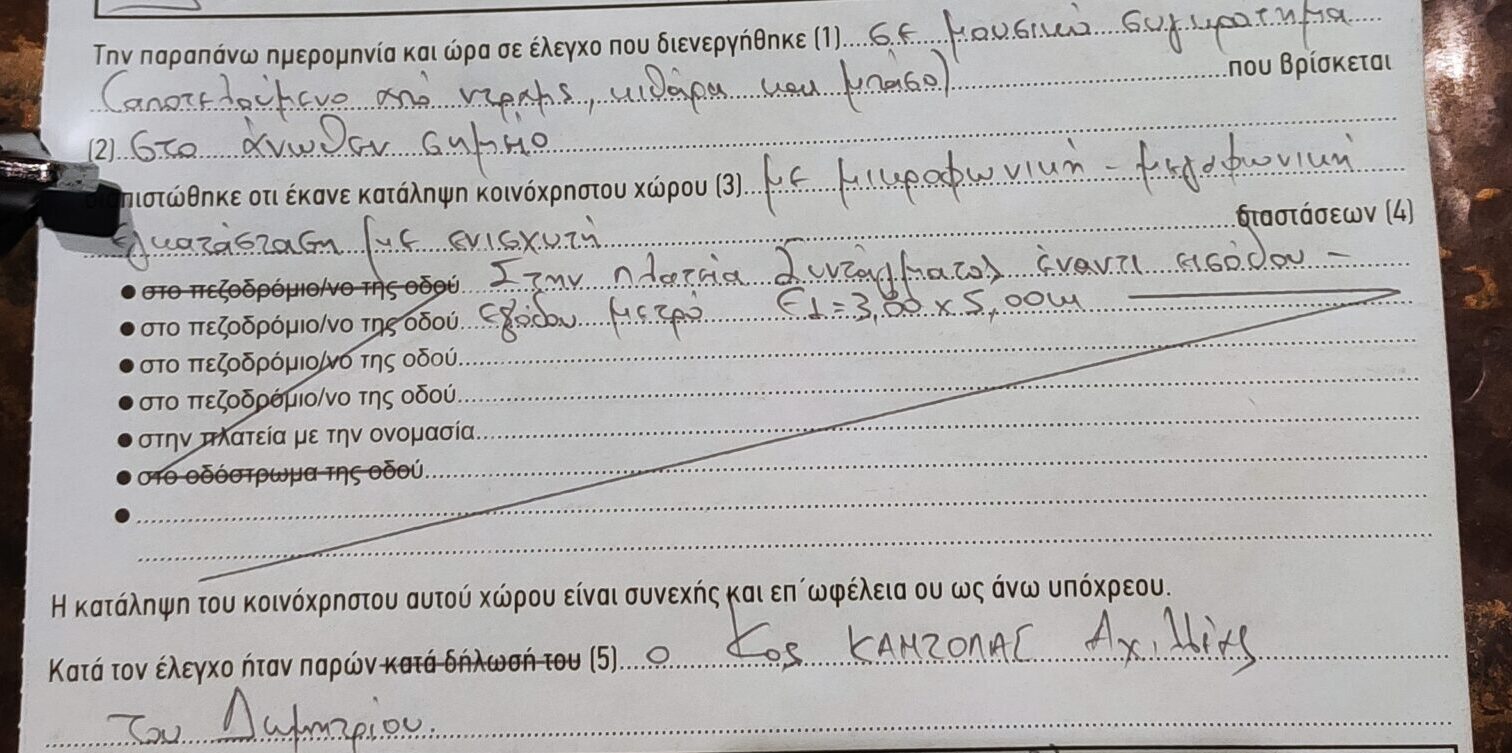 Την παραπάνω ημερομηνία και ώρα σε έλεγχο που διενεργήθηκε (1)....σε μουσικό συγκρότημα....
(αποτελούμενο από ντραμς, κιθάρα και μπάσο)....που βρίσκεται
(2)..στο άνωθεν σημείο
πιστώθηκε οτι έκανε κατάληψη κοινόχρηστου χώρου (3)....με μικροφωνική - μεγαφωνική
εγκατάσταση με ενισχυτή....διαστάσεων (4)
● στο πεζοδρόμιο/νο της οδού..Στην πλατεία Συντάγματος έναντι εισόδου -
● στο πεζοδρόμιο/νο της οδού..εξόδου μετρό Ε1=3,00 x 5,00m
● στο πεζοδρόμιο/νο της οδού....
● στο πεζοδρόμιο/νο της οδού....
● στην πλατεία με την ονομασία....
● στο οδόστρωμα της οδού....
●....
Η κατάληψη του κοινόχρηστου αυτού χώρου είναι συνεχής και επ΄ωφέλεια ου ως άνω υπόχρεου.
Κατά τον έλεγχο ήταν παρών κατά δήλωσή του (5)....ο κος Αχιλλέας
του Δημητρίου.